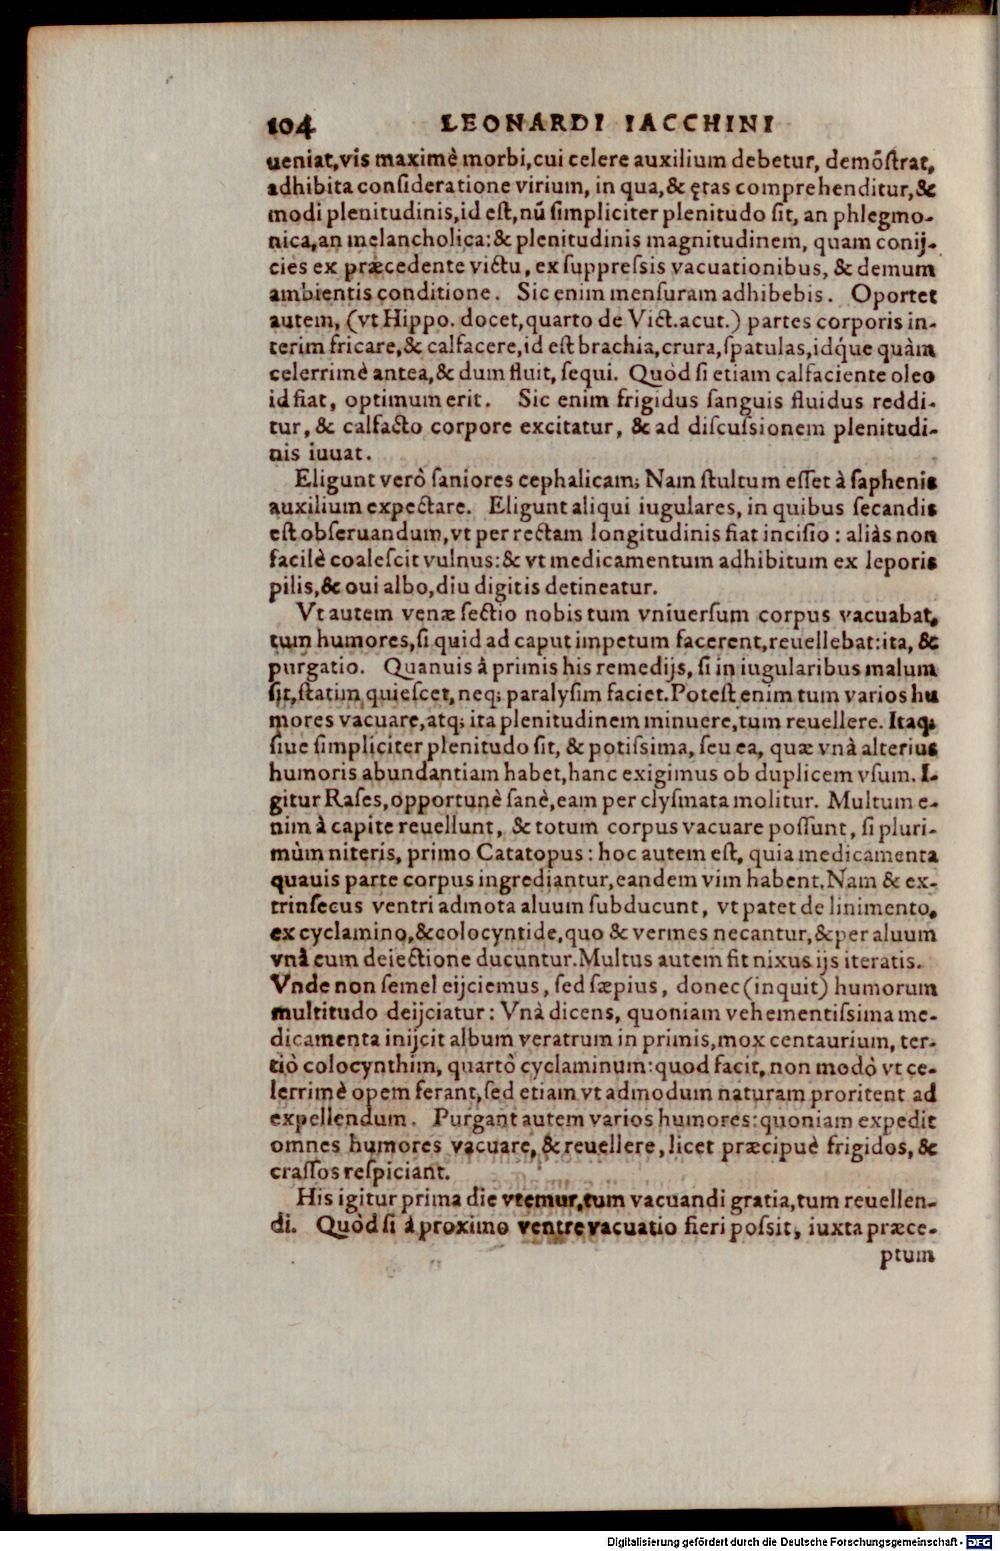 104 LEONARDI IACCHINI
ueniat,vis maximè morbi,cui celere auxilium debetur, demõſtrat,
adhibita conſideratione virium, in qua,& ętas comprehenditur,&
modi plenitudinis,id eſt,nũ ſimpliciter plenitudo ſit, an phlegmo-
nica,an melancholica:& plenitudinis magnitudinem, quam conij-
cies ex præcedente victu, ex ſuppreſsis vacuationibus, & demum
ambientis conditione. Sic enim menſuram adhibebis. Oportet
autem, (vt Hippo. docet,quarto de Vict.acut.) partes corporis in-
terim fricare,& calfacere,id eſt brachia,crura,ſpatulas,idq́ue quàm
celerrimè antea,& dum fluit, ſequi. Quòd ſi etiam calfaciente oleo
id fiat, optimum erit. Sic enim frigidus ſanguis fluidus reddi-
tur, & calfacto corpore excitatur, & ad diſcuſsionem plenitudi-
nis iuuat.
Eligunt verò ſaniores cephalicam; Nam ſtultum eſſet à ſaphenis
auxilium expectare. Eligunt aliqui iugulares, in quibus ſecandis
eſt obſeruandum,vt per rectam longitudinis fiat inciſio : aliàs non
facilè coaleſcit vulnus:& vt medicamentum adhibitum ex leporis
pilis,& oui albo,diu digitis detineatur.
Vt autem venæ ſectio nobis tum vniuerſum corpus vacuabat,
tum humores,ſi quid ad caput impetum facerent,reuellebat:ita, &
purgatio. Quanuis à primis his remedijs, ſi in iugularibus malum
ſit,ſtatim quieſcet,neq; paralyſim faciet.Poteſt enim tum varios hu
mores vacuare,atq; ita plenitudinem minuere,tum reuellere. Itaq;
ſiue ſimpliciter plenitudo ſit, & potiſsima, ſeu ea, quæ vnà alterius
humoris abundantiam habet,hanc exigimus ob duplicem vſum. I-
gitur Raſes,opportunè ſanè,eam per clyſmata molitur. Multum e-
nim à capite reuellunt, & totum corpus vacuare poſſunt, ſi pluri-
mùm niteris, primo Catatopus : hoc autem eſt, quia medicamenta
quauis parte corpus ingrediantur,eandem vim habent.Nam & ex-
trinſecus ventri admota aluum ſubducunt, vt patet de linimento,
ex cyclamino,& colocyntide,quo & vermes necantur,& per aluum
vnà cum deiectione ducuntur.Multus autem fit nixus ijs iteratis.
Vnde non ſemel eijciemus, ſed ſæpius, donec (inquit) humorum
multitudo deijciatur : Vnà dicens, quoniam vehementiſsima me-
dicamenta inijcit album veratrum in primis,mox centaurium, ter-
tiò colocynthim, quartò cyclaminum:quod facit, non modò vt ce-
lerrimè opem ferant,ſed etiam vt admodum naturam proritent ad
expellendum. Purgant autem varios humores:quoniam expedit
omnes humores vacuare, & reuellere, licet præcipuè frigidos, &
craſſos reſpiciant.
His igitur prima die vtemur,tum vacuandi gratia,tum reuellen-
di. Quòd ſi à proximo ventre vacuatio fieri poſsit, iuxta præce-
ptum
Digitalisierung gefördert durch die Deutsche Forschungsgemeinschaft - DFG